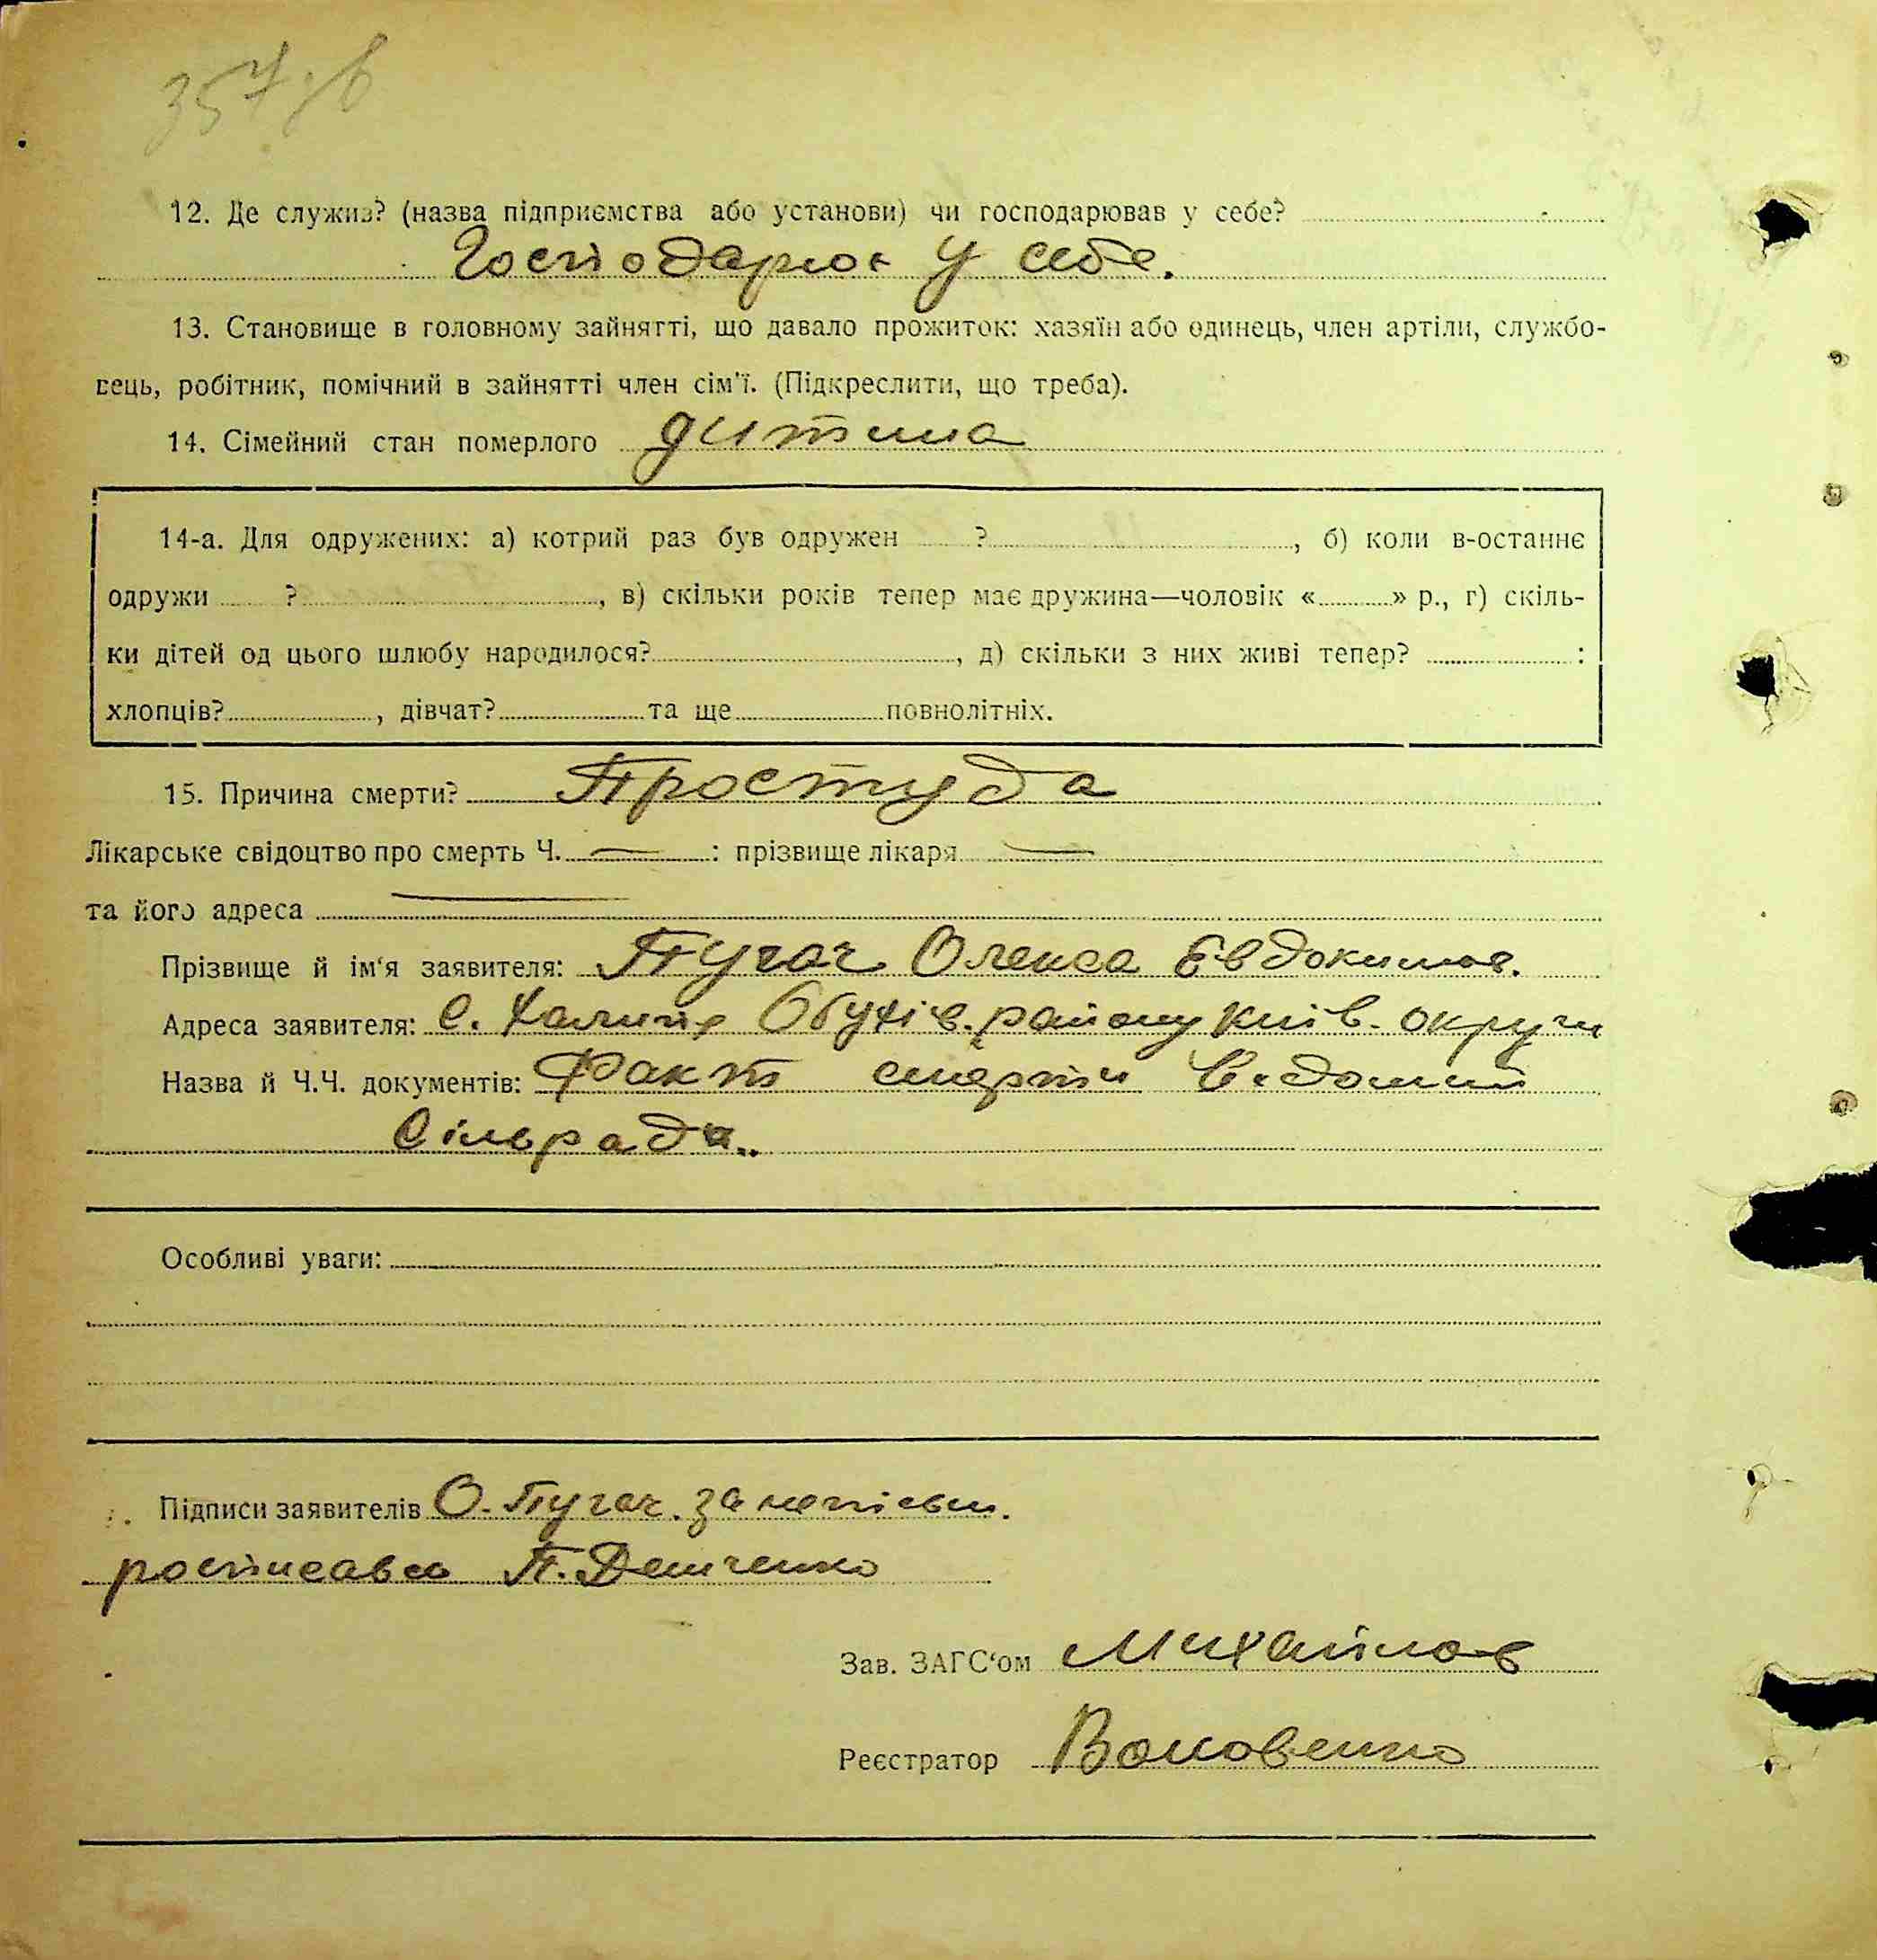 357 зв
12. Де служив? (назва підприємства або установи) чи господарював у себе?
Господарює у себе.
13. Становище в головному зайнятті, що давало прожиток: хазяїн або одинець, член артіли, службо-
вець, робітник, помічний в зайнятті член сім'ї. (Підкреслити, що треба).
14. Сімейний стан померлого дитина
14-а. Для одружених: а) котрий раз був одружен ? , б) коли в-останнє
одружи ? , в) скільки років тепер має дружина—чоловік « » р., г) скіль-
ки дітей од цього шлюбу народилося? , д) скільки з них живі тепер? :
хлопців? , дівчат? та ще повнолітніх.
15. Причина смерти? Простуда
Лікарське свідоцтво про смерть Ч. — : прізвище лікаря —
та його адреса —
Прізвище й ім'я заявителя: Пугач Олекса Евдокимов.
Адреса заявителя: С. Халипʼя Обухів. району Київ. округи
Назва й Ч.Ч. документів: Факт смерти Відомий
Сільраді..
Особливі уваги:
Підписи заявителів О. Пугач. за неписьм.
росписався П. Демченко
Зав. ЗАГС'ом Михайлов
Реєстратор